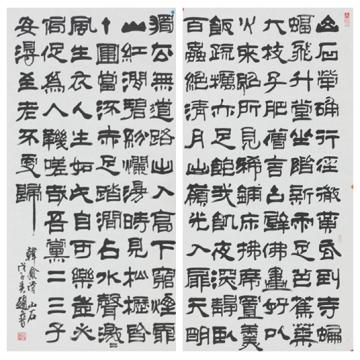 山石犖确行徑微黃昏到寺蝙
蝠飛升堂坐階新雨足芭蕉葉
大枝子肥僧言古壁佛畫好以
火來照所見稀鋪床拂席置羹
飯疏糲亦足飽我飢夜深靜臥
百蟲絕清月出嶺光入扉天明
獨去無道路出入高下窮煙霏
山紅澗碧紛爛漫時見松櫪皆
十圍當流赤足蹋澗石水聲激激
風生衣人生如此自可樂豈必
局促為人鞿嗟哉吾黨二三子
安得至老不更歸
韓愈詩山石